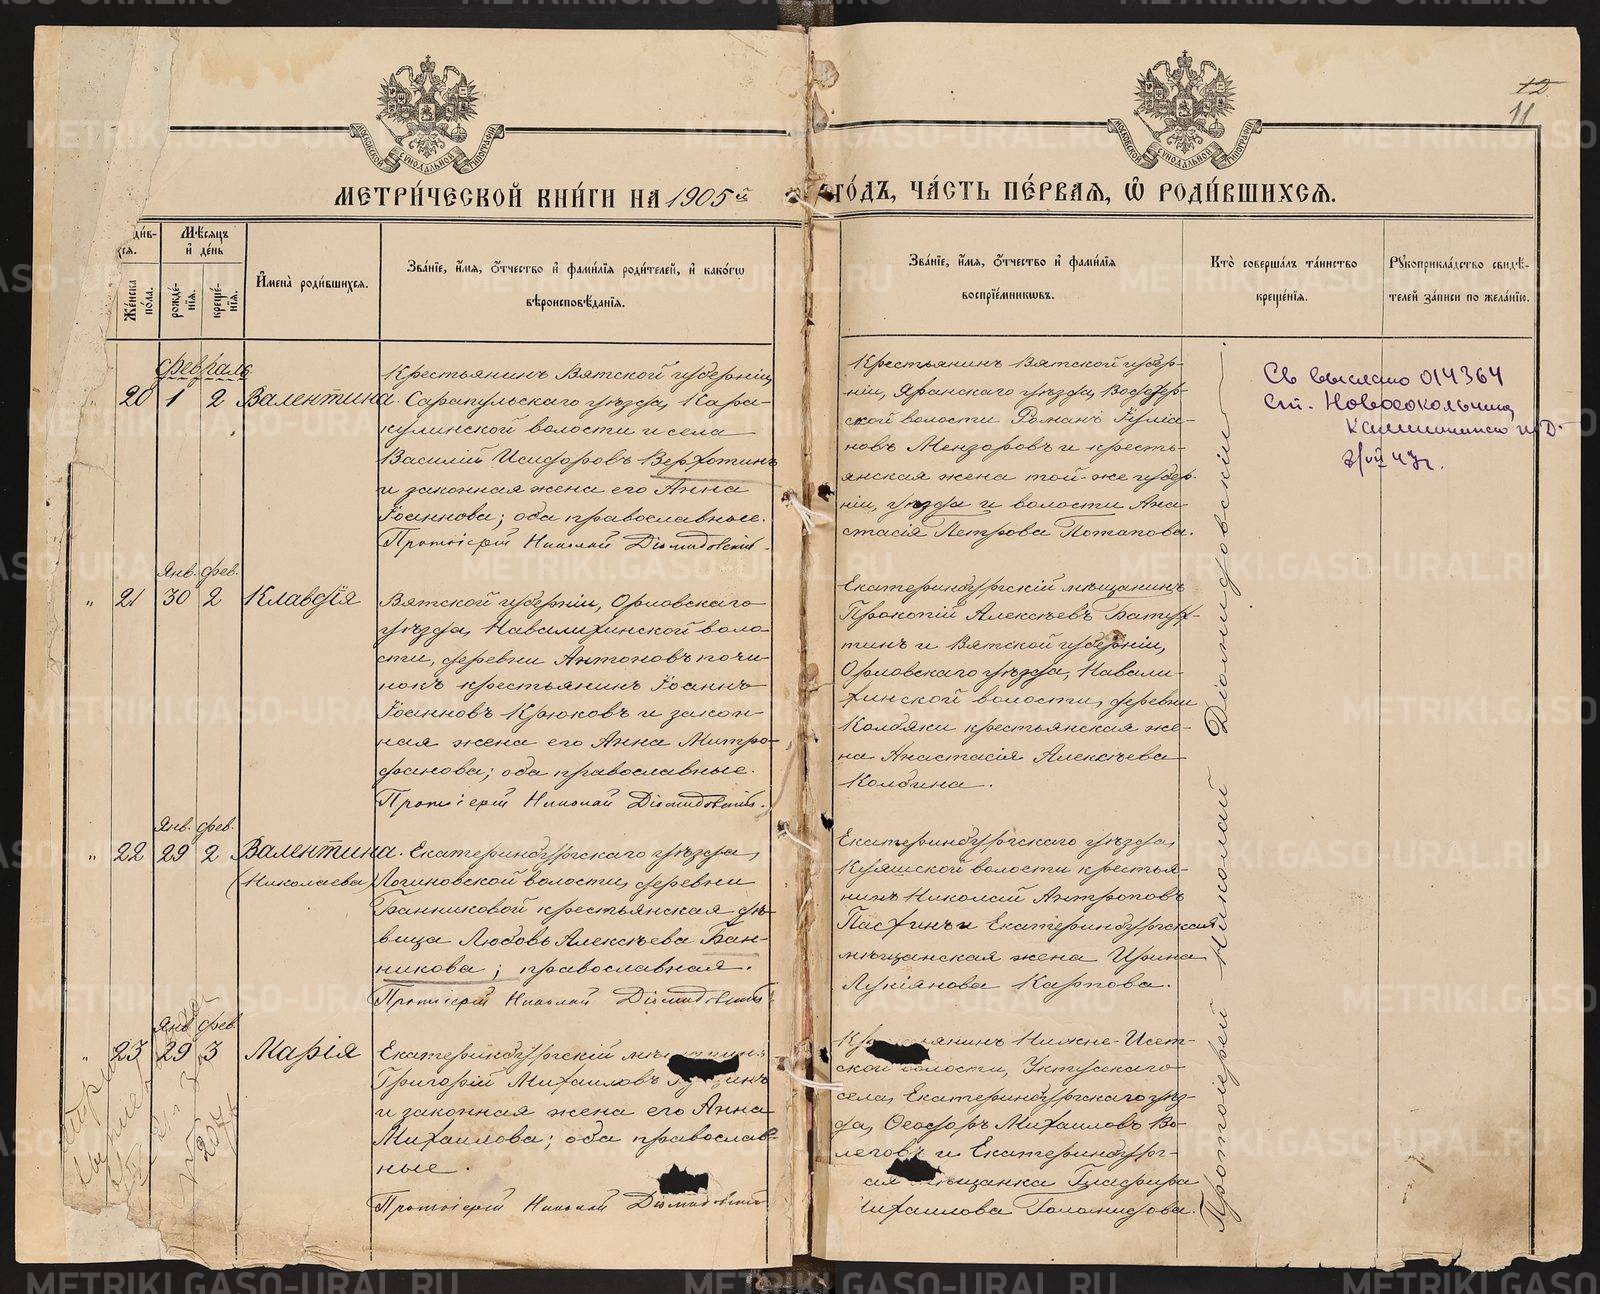 12
11
МЕТРИ́ЧЕСКОЙ КНИ́ГИ НА 1905й
ГО́ДЪ, ЧА́СТЬ ПЕ́РВАЯ, Ѡ҆ РОДИ́ВШИХСЯ.
Же́нска по́ла.
Мѣ́сяцъ и҆ де́нь
рожде́нїя.
креще́нїя.
И҆мена̀ роди́вшихся.
Зва́нїе, и҆́мя, ѻ҆́тчество и҆ фами́лїя роди́телей, и҆ како́гѡ
вѣроисповѣ́данїя.
Зва́нїе, и҆́мя, ѻ҆́тчество и҆ фами́лїя
воспрїе́мникѡвъ.
Кто̀ соверша́лъ та́инство
креще́нїя.
Рꙋкоприкла́дство свидѣ́-
телей за́писи по жела́нїю.
февраль
20 1 2 Валентина.
Крестьянинъ Вятской губерніи,
Сарапульскаго уѣзда, Кара-
кулинской волости и села
Василій Исидоровъ Верхотинъ
и законная жена его Анна
Іоаннова; оба православные.
Протоіерей Николай Діомидовскій.
Крестьянинъ Вятской губер-
ніи, Яранскаго уѣзда,
ской волости Романъ Іуліа-
новъ Мензоровъ и кресть-
янская жена той-же губер-
ніи, уѣзда и волости Ана-
стасія Петрова Потапова.
Протоіерей Николай Діомидовскій
Св выслано 014364
ст. Новосокольники
Калининской ж.Д.
Янв. фев.
" 21 30 2 Клавдія
Вятской губерніи, Орловскаго
уѣзда, Навалихинской воло-
сти, деревни Антоновъ почи-
нокъ крестьянинъ Іоаннъ
Іоанновъ Крюковъ и закон-
ная жена его Анна Митро-
фанова; оба православные.
Протоіерей Николай Діомидовскій.
Екатеринбургскій мѣщанинъ
Прокопій Алексѣевъ Батух-
тинъ и Вятской губерніи,
Орловскаго уѣзда, Навали-
хинской волости, деревни
Колбяки крестьянская же-
на Анастасія Алексѣева
Колбина.
Янв. фев.
" 22 29 2 Валентина.
(Николаева)
Екатеринбургскаго уѣзда,
Логиновской волости, деревни
Банниковой крестьянская дѣ-
вица Любовь Алексѣева Бан-
никова; православная.
Протоіерей Николай Діомидовскій
Екатеринбургскаго уѣзда,
Куяшской волости крестья-
нинъ Николай Антроповъ
Пасхинъ и Екатеринбургская
мѣщанская жена Ирина
Лукіянова Карпова.
Янв. фев.
" 23 29 3 Марія
Екатеринбургскій
Григорій Михаиловъ
и законная жена его Анна
Михаилова; оба православ-
ные.
Протоіерей Николай Діомидовскій
Нижне-Исет-
ской волости, Уктусскаго
села, Екатеринбургскаго уѣз-
да, Ѳеодоръ Михаиловъ Во-
леговъ и Екатеринбург-
Глафира
Михаилова